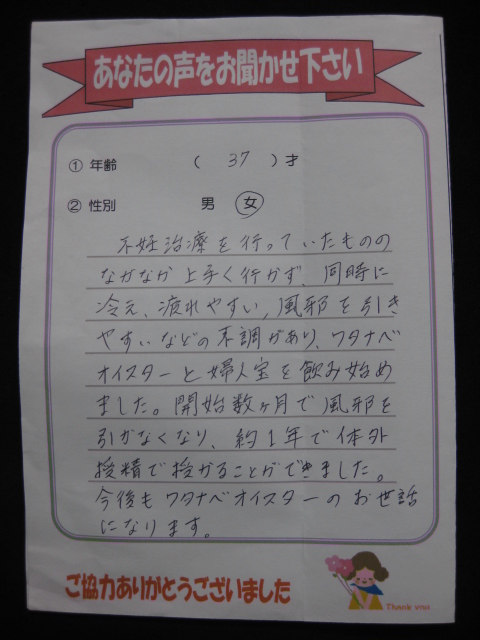 あなたの声をお聞かせ下さい
① 年齢 ( 37 )才
② 性別 男 女
不妊治療を行っていたものの
なかなか上手く行かず、同時に
冷え、疲れやすい、風邪を引き
やすいなどの不調があり、ワタナベ
オイスターと婦人宝を飲み始め
ました。開始数ヶ月で風邪を
引かなくなり、約1年で体外
授精で授かることができました。
今後もワタナベオイスターのお世話
になります。
ご協力ありがとうございました
Thank you